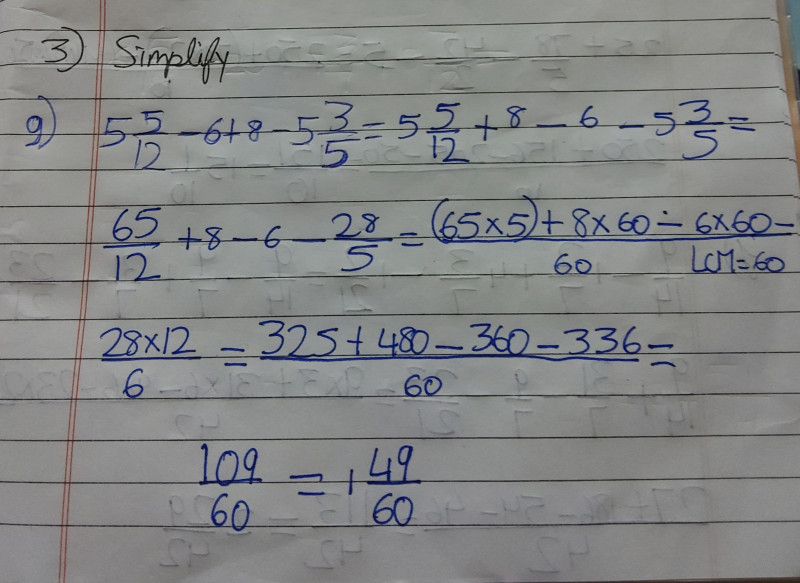 3) Simplify
g) 5 5/12 - 6 + 8 - 5 3/5 = 5 5/12 + 8 - 6 - 5 3/5 =
65/12 + 8 - 6 - 28/5 = (65×5) + 8×60 - 6×60 - / 60 LCM = 60
28×12/6 = 325 + 480 - 360 - 336/60 =
109/60 = 1 49/60